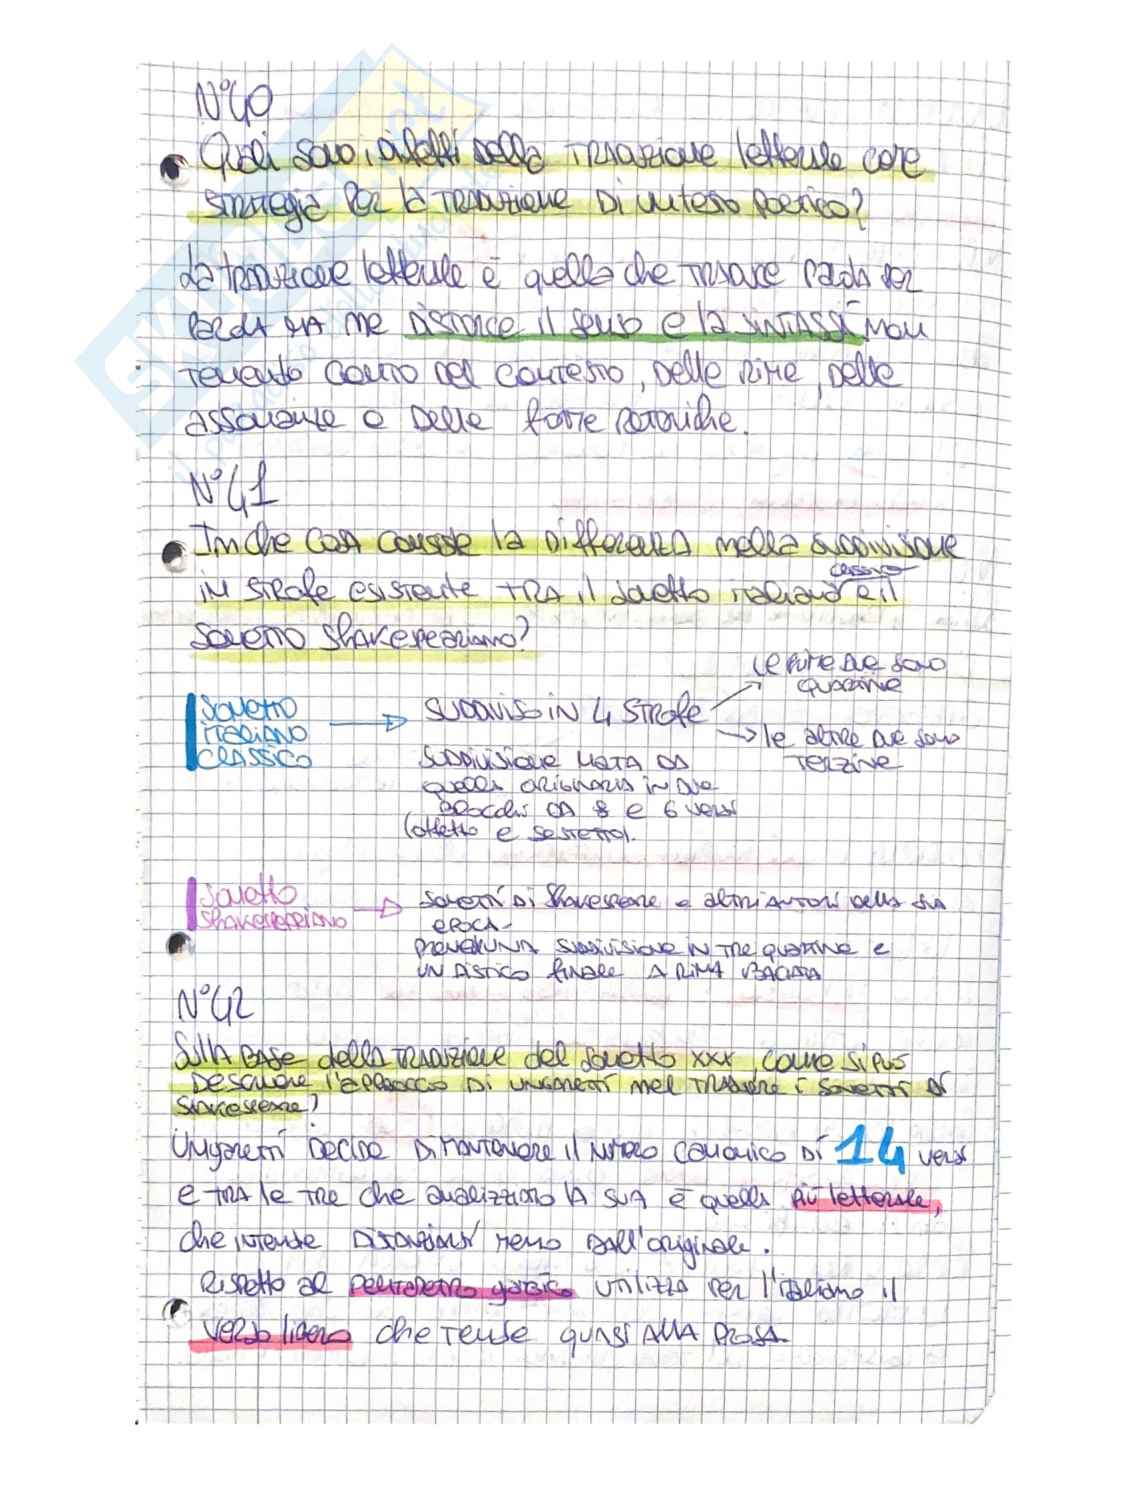 N°40
Quali sono i difetti della traduzione letterale come
strategia per la traduzione di un testo poetico?
La traduzione letterale è quella che traduce parola per
parola ma ne distorce il senso e la sintassi non
tenendo conto del contesto, delle rime, delle
assonanze e delle forme retoriche.
N°41
In che cosa consiste la differenza nella suddivisione
classico
in strofe esistente tra il sonetto italiano e il
sonetto shakespeariano?
Sonetto
italiano
classico
suddiviso in 4 strofe
le prime due sono
quartine
le altre due sono
terzine
suddivisione nata da
quella originaria in due
blocchi da 8 e 6 versi
(ottetto e sestetto).
Sonetto
shakespeariano
sonetti di Shakespeare e altri autori della sua
epoca.
prevede una suddivisione in tre quartine e
un distico finale a rima baciata
N°42
Sulla base della traduzione del sonetto XXX, come si può
descrivere l'approccio di Ungaretti nel tradurre i sonetti di
Shakespeare?
Ungaretti decide di mantenere il numero canonico di 14 versi
e tra le tre che analizziamo la sua è quella più letterale,
che intende distanziarsi meno dall'originale.
Rispetto al pentametro giambico utilizza per l'italiano il
verso libero che tende quasi alla prosa